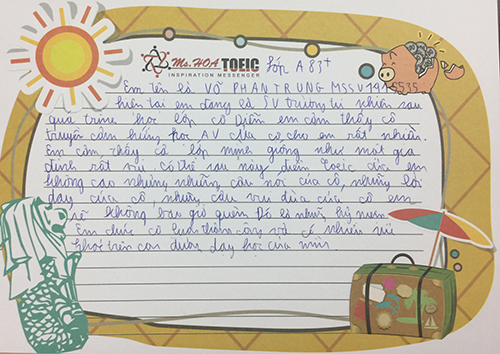 Ms. HOA TOEIC lớp A83+
INSPIRATION MESSENGER
Em tên là VÕ PHAN TRUNG MSSV
hiện tại em đang là SV trường tự nhiên sau
quá trình học lớp cô Diễm em cảm thấy cô
truyền cảm hứng học AV của cô cho em rất nhiều.
Em cảm thấy cô lớp mình giống như một gia
đình rất vui. có thể sau này điểm toeic của em
không cao nhưng những câu nói của cô, những lời
dạy của cô, những câu vui đùa của cô em
sẽ không bao giờ quên. Đó là những kỷ niệm
Em chúc cô luôn có nhiều sức
khoẻ trên con đường dạy học của mình